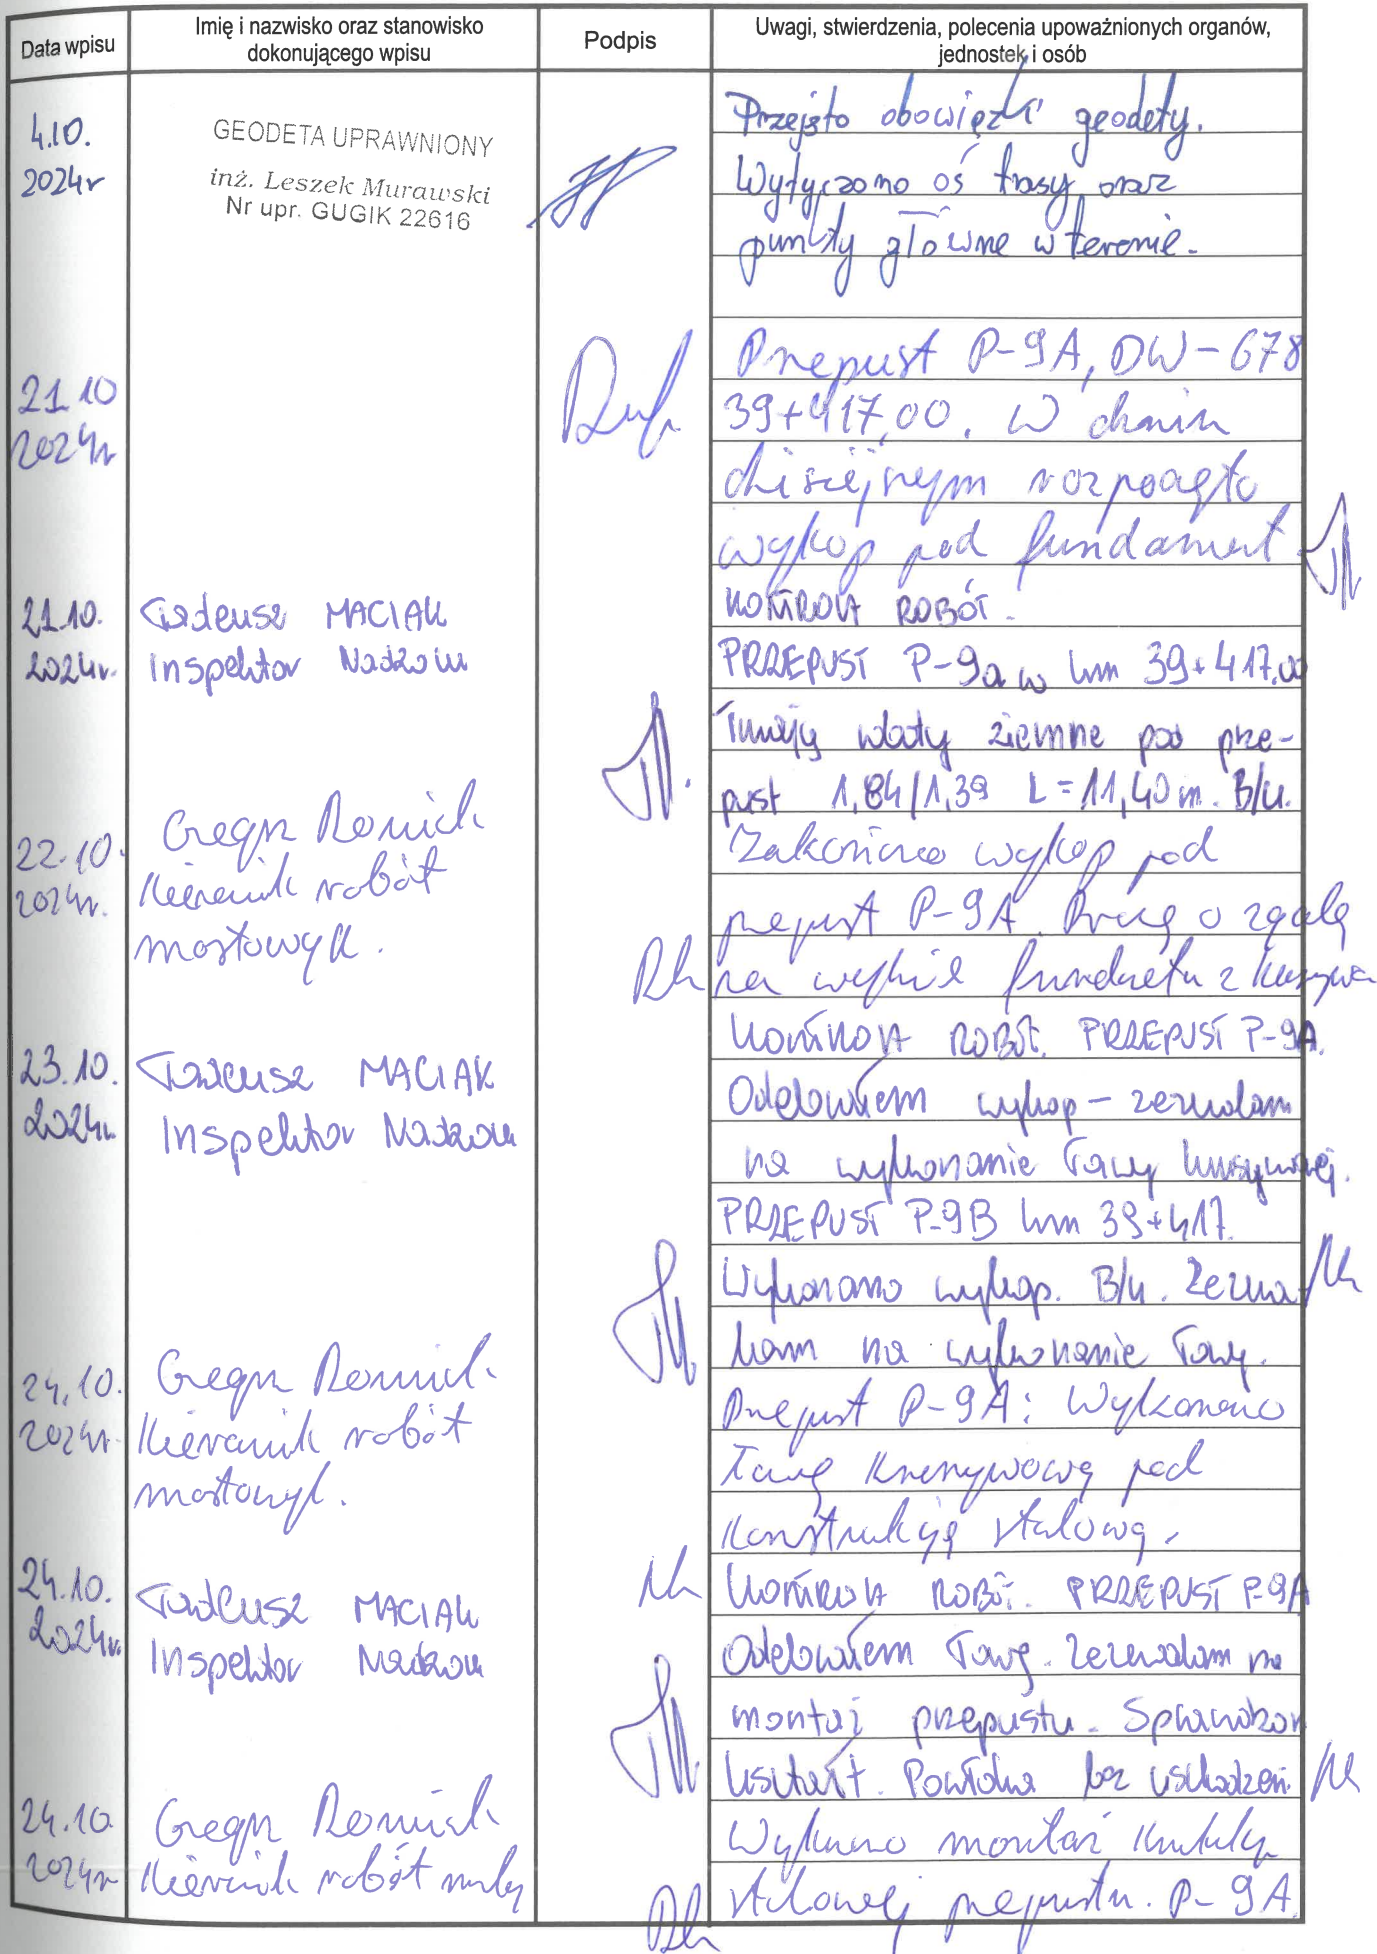 Data wpisu
Imię i nazwisko oraz stanowisko
dokonującego wpisu
Podpis
Uwagi, stwierdzenia, polecenia upoważnionych organów,
jednostek i osób
4.10.
2024r
GEODETA UPRAWNIONY
inż. Leszek Murawski
Nr upr. GUGIK 22616
Przejęto obowiązki geodety.
Wytyczono oś trasy oraz
punkty główne w terenie.
21.10
2024r
Przepust P-9A, DW-678
39+417,00. W dniu
dzisiejszym rozpoczęto
wykop pod fundament
21.10.
2024r.
Tadeusz MACIAK
Inspektor Nadzoru
KONTROLA ROBÓT.
PRZEPUST P-9a w km 39+417.00
Trwają roboty ziemne pod prze-
pust 1,84/1,39 L=11,40m. B/u.
22.10.
2024r.
Grzegorz
Kierownik robót
mostowych.
Zakończono wykop pod
przepust P-9A. Proszę o zgodę
na fundamentu z kruszywa
23.10.
2024r.
Tadeusz MACIAK
Inspektor Nadzoru
KONTROLA ROBÓT. PRZEPUST P-9A.
Odebrałem wykop – zezwalam
na wykonanie ławy kruszywowej.
PRZEPUST P-9B km 39+417.
Wykonano wykop. B/u. Zezwa-
lam na wykonanie ławy.
24.10.
2024r.
Grzegorz
Kierownik robót
mostowych.
Przepust P-9A: Wykonano
ławę kruszywową pod
konstrukcję stalową.
24.10.
2024r.
Tadeusz MACIAK
Inspektor Nadzoru
KONTROLA ROBÓT. PRZEPUST P-9A
Odebrałem ławę. Zezwalam na
montaż przepustu.
kształt. Powłoka bez uszkodzeń.
24.10.
2024r
Grzegorz
Kierownik robót
Wykonano montaż
stalowej przepustu. P-9A.